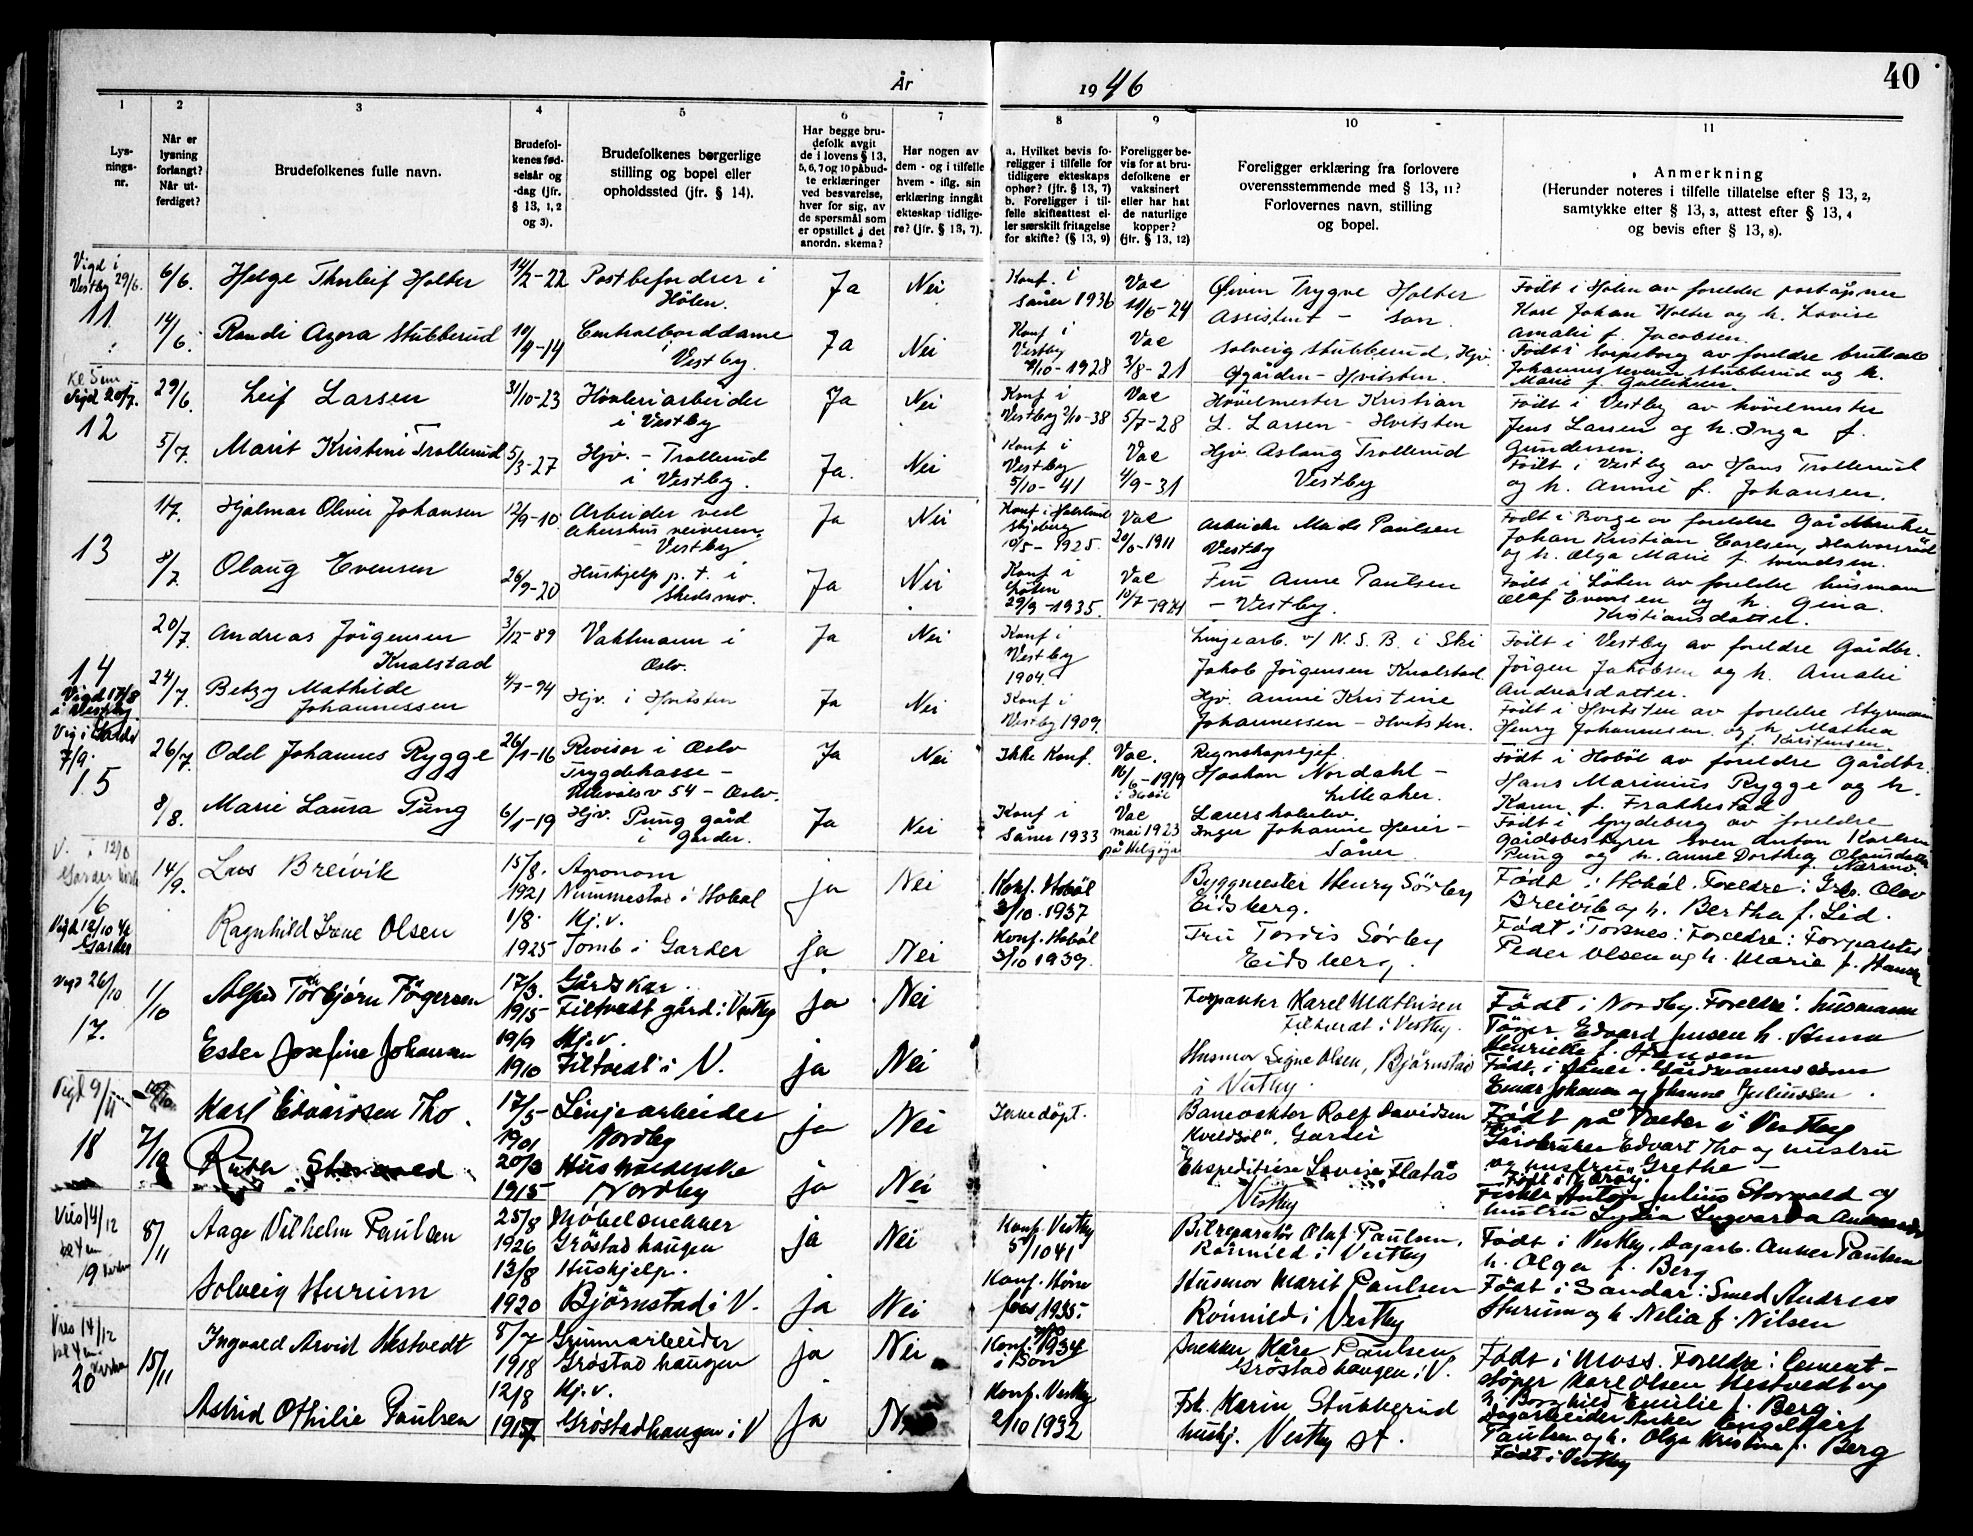 År 1946
40
1
2
3
4
5
6
7
8
9
10
11
Lys-
nings-
nr.
Når er
lysning
forlangt?
Når ut-
ferdiget?
Brudefolkenes fulle navn.
Brudefol-
kenes fød-
selsår og
-dag (jfr.
§ 13, 1, 2
og 3).
Brudefolkenes borgerlige
stilling og bopel eller
opholdssted (jfr. § 14).
Har begge bru-
defolk avgit
de i lovens § 13,
5, 6, 7 og 10 påbud-
te erklæringer
ved besvarelse,
hver for sig, av
de spørsmål som
er opstillet i det
anordn. skema?
Har nogen av
dem - og i tilfelle
hvem - iflg. sin
erklæring inngått
ekteskap tidlige-
re? (jfr. § 13, 7).
a. Hvilket bevis fo-
religger i tilfelle for
tidligere ekteskaps
ophør? (jfr. § 13, 7)
b. Foreligger i til-
felle skifteattest el-
ler særskilt fritagelse
for skifte? (§ 13, 9)
Foreligger be-
vis for at bru-
defolkene er
vaksinert
eller har hat
de naturlige
kopper?
(jfr. § 13, 12)
Foreligger erklæring fra forlovere
overensstemmende med § 13, 11?
Forlovernes navn, stilling
og bopel.
Anmerkning
(Herunder noteres i tilfelle tillatelse efter § 13, 2,
samtykke efter § 13, 3, attest efter § 13, 4
og bevis efter § 13, 8).
Vigd i
Vestby 29/6.
11
6/6.
Helge Thorleif Holter
14/2-22
Postbefordrer i
Hölen.
Ja
Nei
Konf. i
Såner 1936
Vac
11/6-24
Öivin Trygve Holter
Assistent - Son.
Födt i Hölen av foreldre poståpner
Karl Johan Holter og h. Lovise
Amalie f. Jacobsen.
14/6.
Randi Agora Stubberud
10/9-14
Centralborddame
i
Vestby.
Ja
Nei
Konf i
Vestby
1928
Vac
3/8-21
Solveig Stubberud, Hjv.
Øgården - Hvitsten.
Födt i Sarpsborg av foreldre
Johannes Stubberud og h.
Marie f.
Kl. 5 em
Vigd 20/7.
12
29/6.
Leif Larsen
31/10-23
Hövleriarbeider
i Vestby
Ja
Nei
Konf i
Vestby 2/10-38
Vac
5/7-28
Hövelmester Kristian
L. Larsen - Hvitsten
Födt i Vestby av hövelmester
Jens Larsen og h. Inga f.
Gundersen.
5/7.
Marit Kristine Trollerud
5/3-27
Hjv. - Trollerud
i Vestby.
Ja.
Nei
Konf i
Vestby
5/10-41
Vac
4/9-31
Hjv. Aslaug Trollerud
Vestby
Födt i Vestby av Hans Trollerud
og h. Anna f. Johansen.
13
1/7.
Hjalmar Oliver Johansen
12/9-10
Arbeider ved
Akershus veivesen,
- Vestby
Ja
Nei
Skjeberg
10/5-1925.
Vac
1911
Arbeider Mads Paulsen
Vestby
Födt i Borge av foreldre Gårdbruker
Johan Kristian Carlsen,
og h. Olga Marie f. Svendsen.
8/7.
Olaug Evensen
26/9-20
Hushjelp p.t. i
Skedsmo.
Ja
Nei
Konf i
Löten
29/9-1935.
Vac
10/7-1924
Fru Anne Paulsen
- Vestby.
Födt i Löten av foreldre husmann
Olaf Evensen og h. Gina
Kristiansdatter.
14
Vigd 17/8
i Vestby
20/7.
Andreas Jörgensen
Knalstad
3/12-89
Vaktmann i
Oslo.
Ja
Nei
Konf i
Vestby
1904.
Linjearb. v/ N.S.B. i Ski
Jakob Jörgensen Knalstad.
Födt i Vestby av foreldre Gårdbr.
Jörgen Jakobsen og h. Amalie
Andreasdatter.
24/7.
Betzy Mathilde
Johannessen
4/7-94
Hjv. i Hvitsten
Ja
Nei
Konf i
Vestby 1909.
Hjv. Anne Kristine
Johannessen - Hvitsten.
Födt i Hvitsten av foreldre styrmann
Henry Johannesen og h. Mathea
f. Kristensen.
Vig i Garder
7/9.
15
26/7.
Odd Johannes Rygge
26/1-16
Revisor i Oslo
Trygdekasse -
Ullevålsv 54 - Oslo.
Ja
Nei
Ikke Konf.
Vac.
16/6-1919
i Hobøl
Regnskapssjef
Haakon Nordahl -
Lilleaker.
Födt i Hoböl av foreldre Gårdbr.
Hans Marinius Rygge og h.
Karen f. Frakkestad
8/8.
Marie Laura Pung
6/1-19
Hjv. Pung gård
i Garder.
Ja
Nei
Konf i
Såner 1933
Vac
mai 1923
på Helgöya
Inger Johanne Heier -
Såner
Födt i Spydeberg av foreldre
Gårdsbestyrer Sven Anton Karlsen
Pung og h. Anne Dorthea Olausdatter
16
Vigd 12/10 46
Garder
14/9.
Lars Breivik
15/8.
1921
Agronom
Nummestad i Hobøl
ja
Nei
Konf. Hobøl
3/10.1937
Byggmester Henry Sörby
Eidsberg.
Födt i Hobøl. Foreldre: Grb. Olav
Breivik og h. Bertha f. Lid.
Ragnhild Irene Olsen
1/8.
1925
Hj.v.
Tomb i Garder
ja
Nei
Konf. Hobøl
3/10 1939.
Fru Tordis Sørby
Eidsberg.
Födt i Torsnes: Foreldre: Forpakter
Peder Olsen og h. Marie f. Hansen
Vigd 26/10
17.
1/10
Alfred Torbjørn Tögersen
17/3.
1915
Gårdskar
Filtvedt gård i Vestby
ja
Nei
Forpakter Karel Mathisen
Filtvedt i Vestby.
Födt i Nordby. Foreldre: husmann
Töger Edvard Jensen h. Anna
Henriette f. Hansen
Ester Josefine Johansen
19/9
1910
Hj.v.
Filtvedt i V.
ja
Nei
Husmor Signe Olsen, Bjørnstad
i Vestby.
Einar Johansen og Johanne Juliussen.
Vigd 9/11
18
7/10
Karl Edvardsen Tho.
17/5
1901
Linjearbeider
Nordby
ja
Nei
Ikke döpt.
Banevokter Rolf Davidsen
"Kveldsol", Garder
Födt på i Vestby
Gårdbruker Edvart Tho og hustru
og hustru Grethe -
Ruth Storvold
20/3
1915
Husholderske
Nordby
ja
Nei
Ekspeditrise Lovise Flatås
Vestby
Fisker Anton Julius Storvold og
hustru Lydia Ingvarda
Vies 14/12
kl 4 em
19 kirken
8/11
Aage Vilhelm Paulsen
25/8
1926
Møbelsnekker
Gröstadhaugen
ja
Nei
Konf. Vestby
5/10 41
Bilreparatør Olaf Paulsen,
Rönnild i Vestby
Födt i Vestby, Dagarb. Anker Paulsen
h. Olga f. Berg
Solveig Hurum
13/8
1920
Hushjelp.
Bjørnstad i V.
ja
Nei
1935.
Husmor Marit Paulsen
Rönnild i Vestby
Födt i Sandar: Smed Andreas
Hurum og h. Nelia f. Nilsen
Vies 14/12
kl 4 em
20 kirken
15/11
Ingvald Arvid Hestvedt
8/7
1918
Grunnarbeider
Gröstadhaugen
ja
Nei
Konf. 1934
i Son
Snekker Kåre Paulsen
Gröstadhaugen i V.
Födt i Moss. Foreldre: Cement-
støper Karl Olsen Hestvedt og
h. Borghild Emilie f. Berg
Astrid Othilie Paulsen
12/8
1917
Hj.v.
Gröstadhaugen i V
ja
Konf. Vestby
2/10 1932
Frk. Karin Stubberud
hushj. Vestby st.
Dagarbeider Anker Engelhart
Paulsen og h. Olga Kristine f. Berg
Födt i Vestby